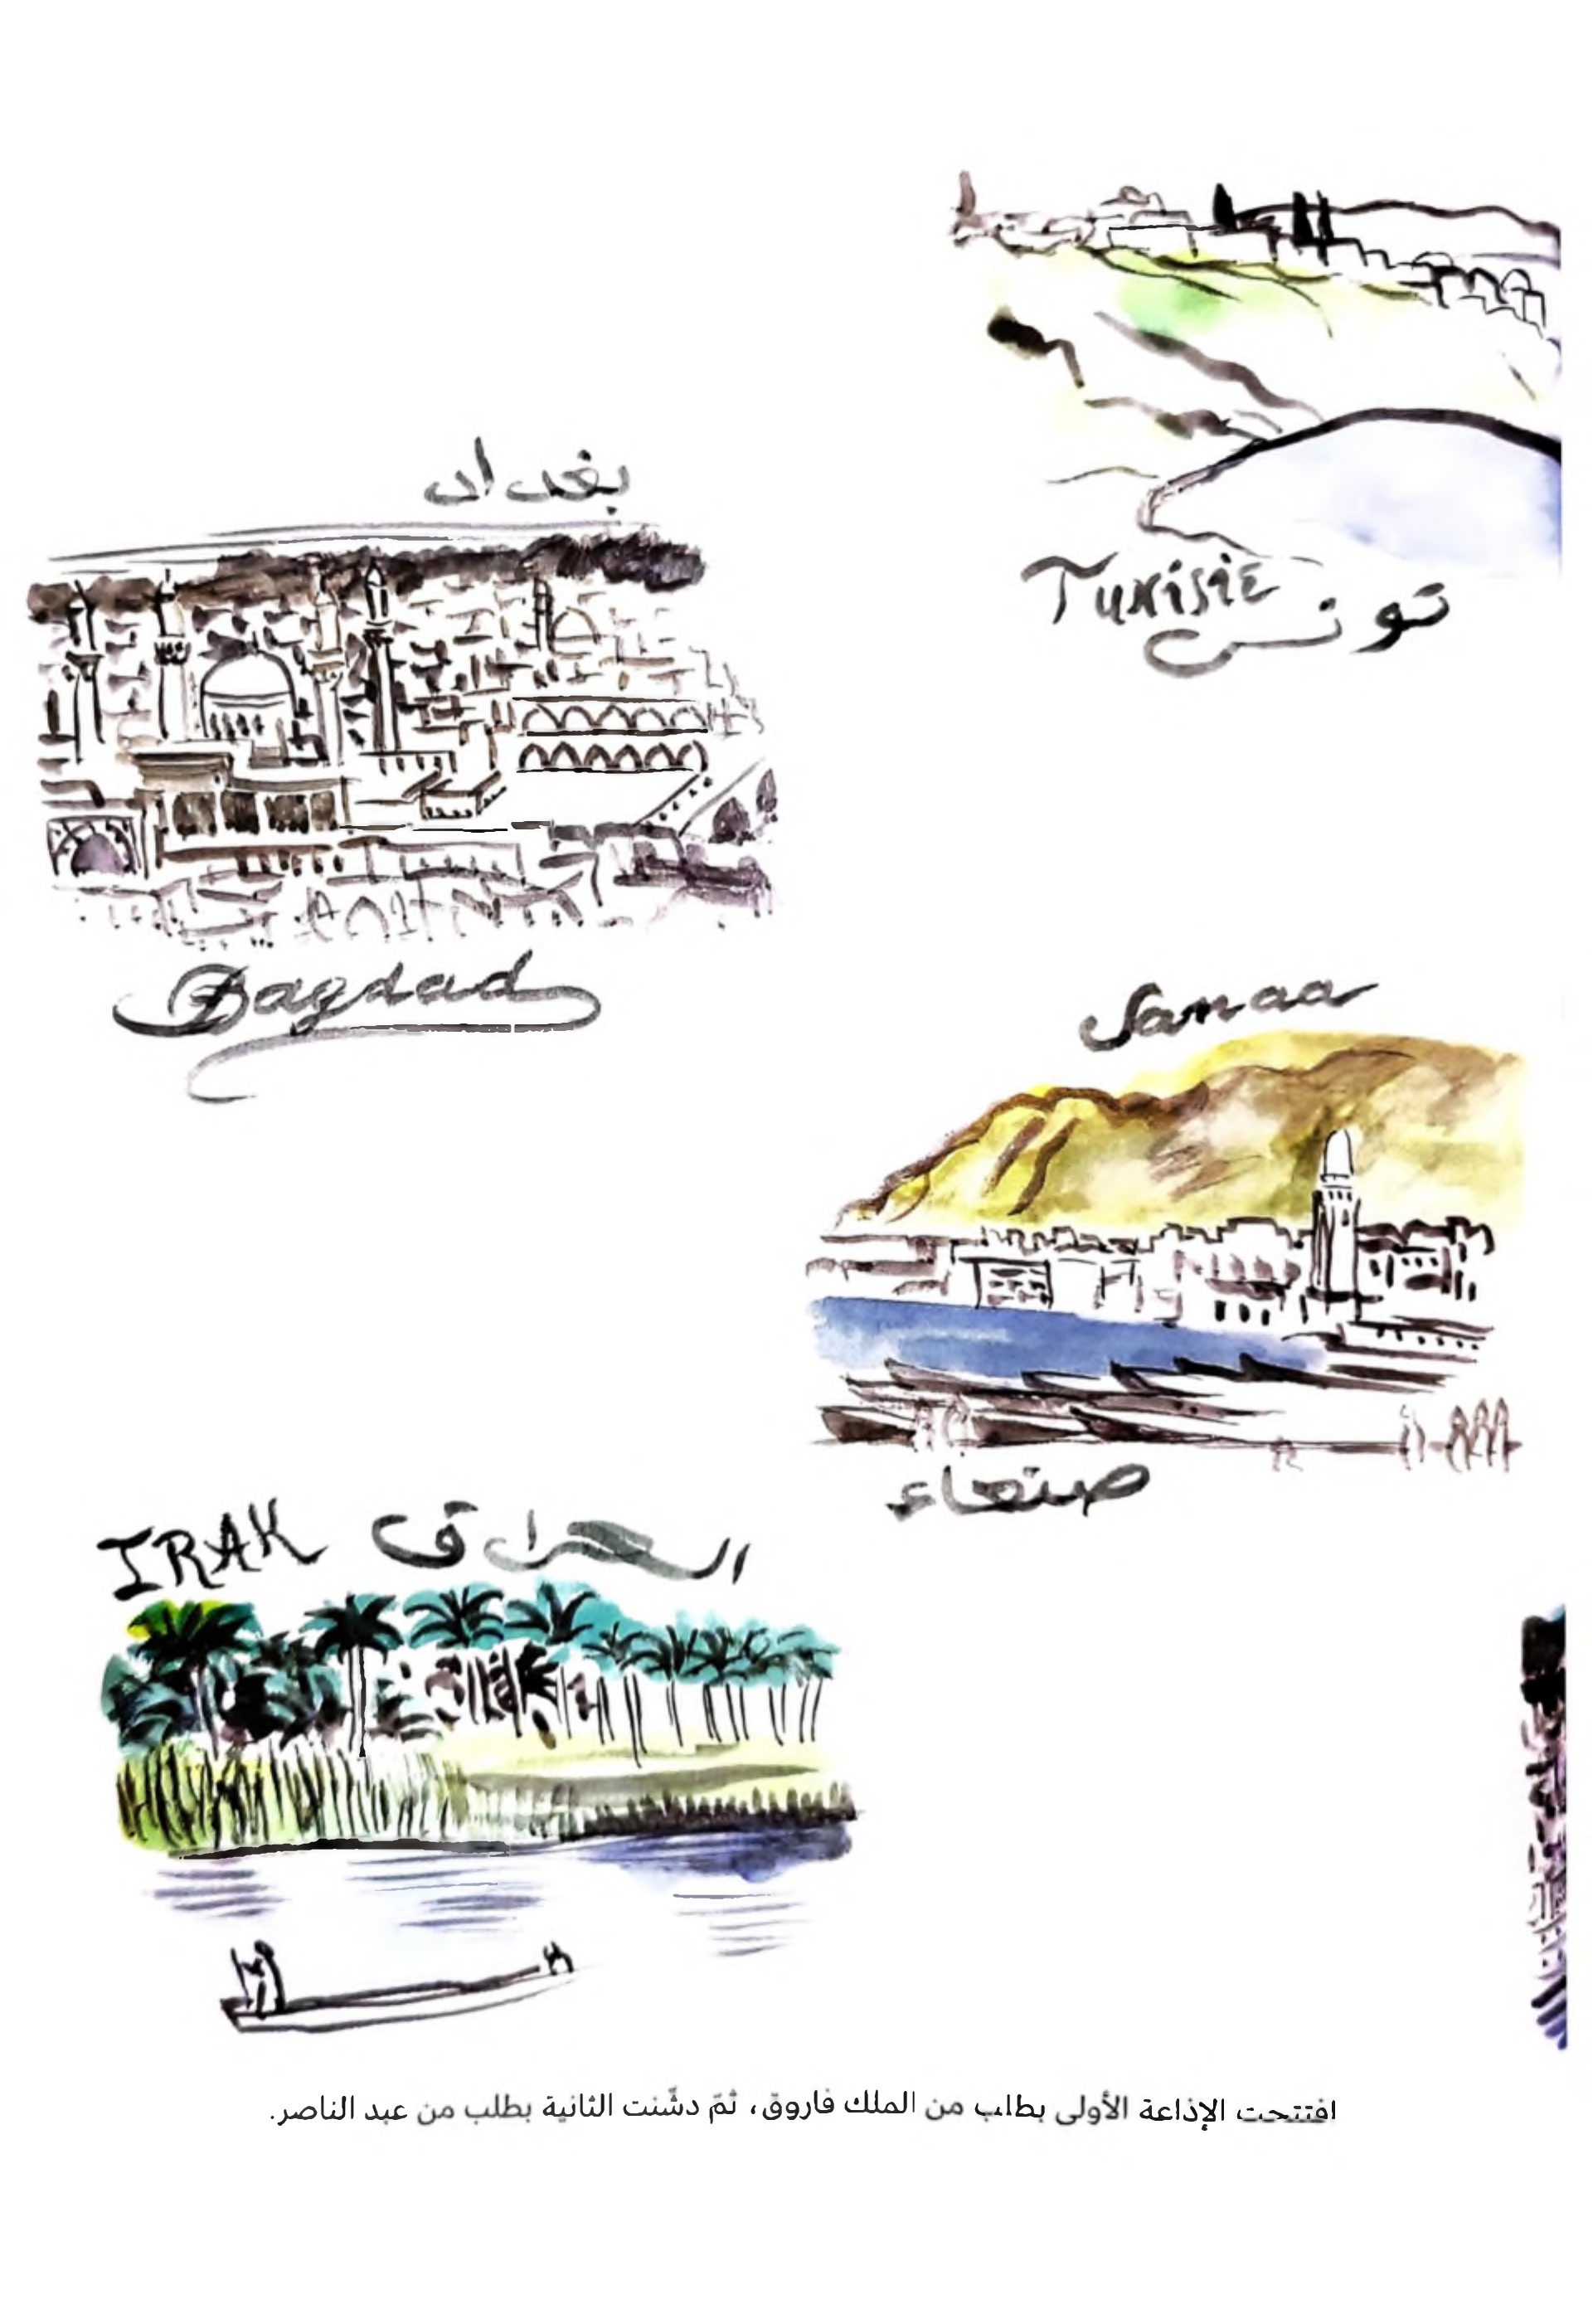 Tunisie
تونس
بغداد
Bagdad
Sanaa
صنعاء
IRAK العراق
افتتحت الإذاعة الأولى بطلب من الملك فاروق، ثمّ دشّنت الثانية بطلب من عبد الناصر.